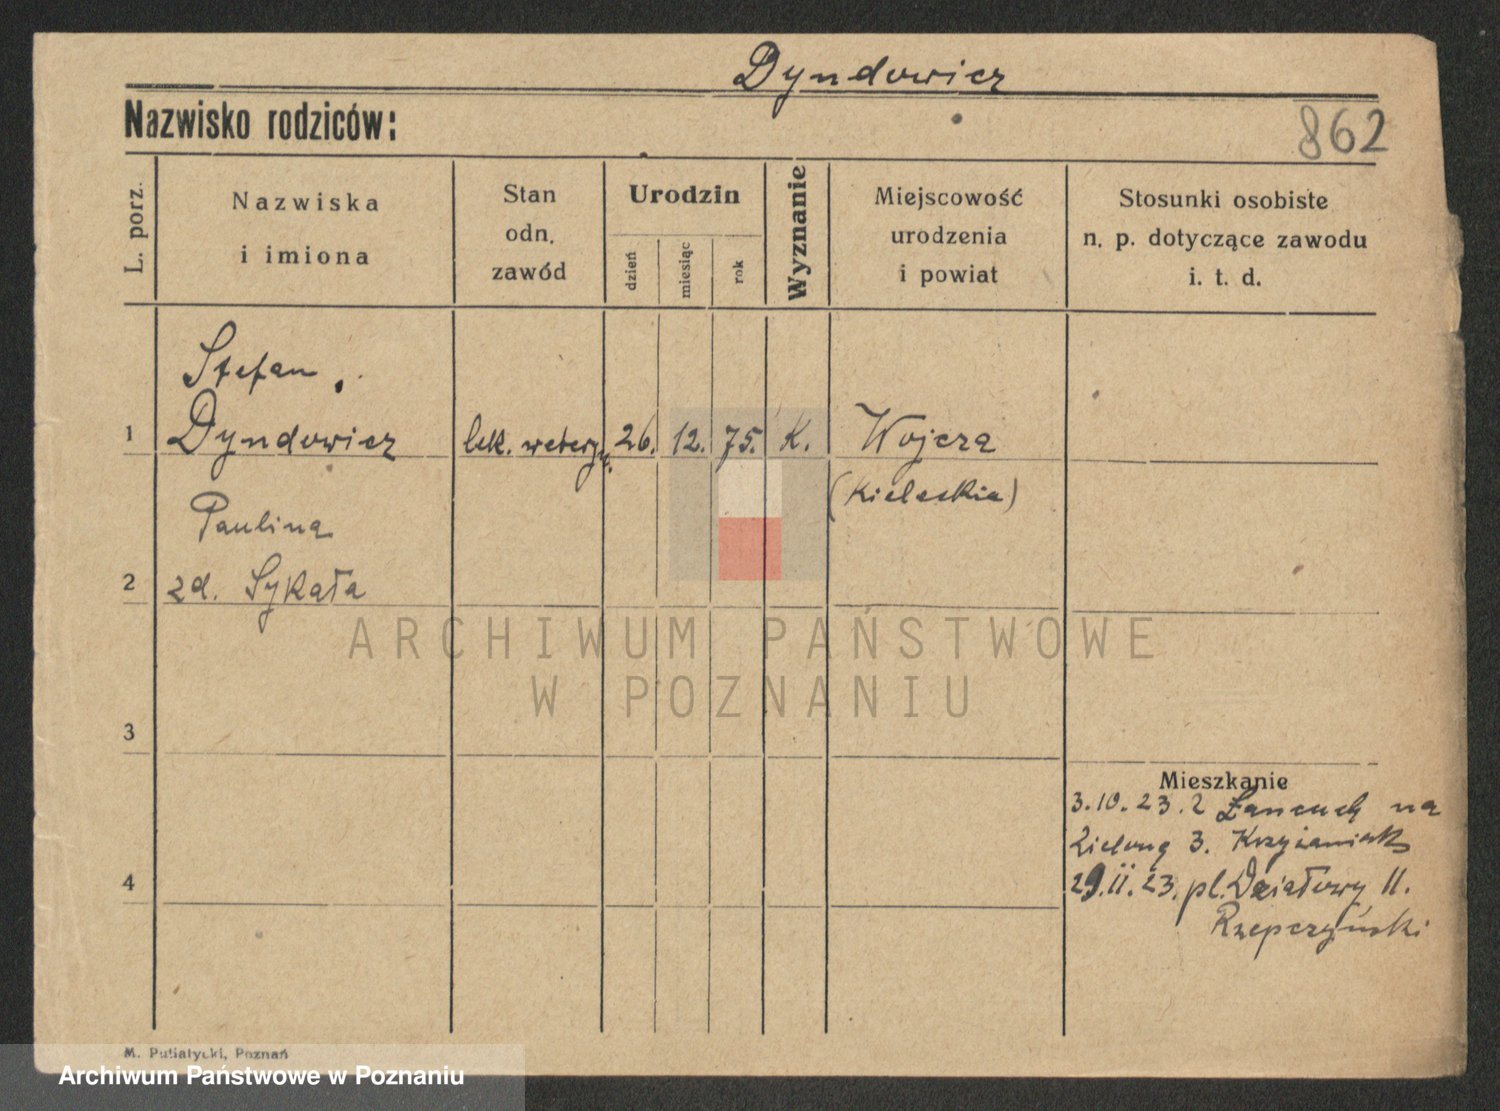 Dyndowicz
Nazwisko rodziców:
862
L. porz.
Nazwiska
i imiona
Stan
odn.
zawód
Urodzin
dzień
miesiąc
rok
Wyznanie
Miejscowość
urodzenia
i powiat
Stosunki osobiste
n. p. dotyczące zawodu
i. t. d.
Stefan
1 Dyndowicz lek. weteryn. 26. 12. 75. K. Wojcza
(Kieleckie)
Paulina
2 zd. Sykała
ARCHIWUM PAŃSTWOWE
W POZNANIU
3
Mieszkanie
3.10.23. z Łańcuch na
Zieloną 3. Krzyżaniak
4
29.11.23. pl. Działowy 11.
Rzepczyński
M. Putiatycki, Poznań
Archiwum Państwowe w Poznaniu